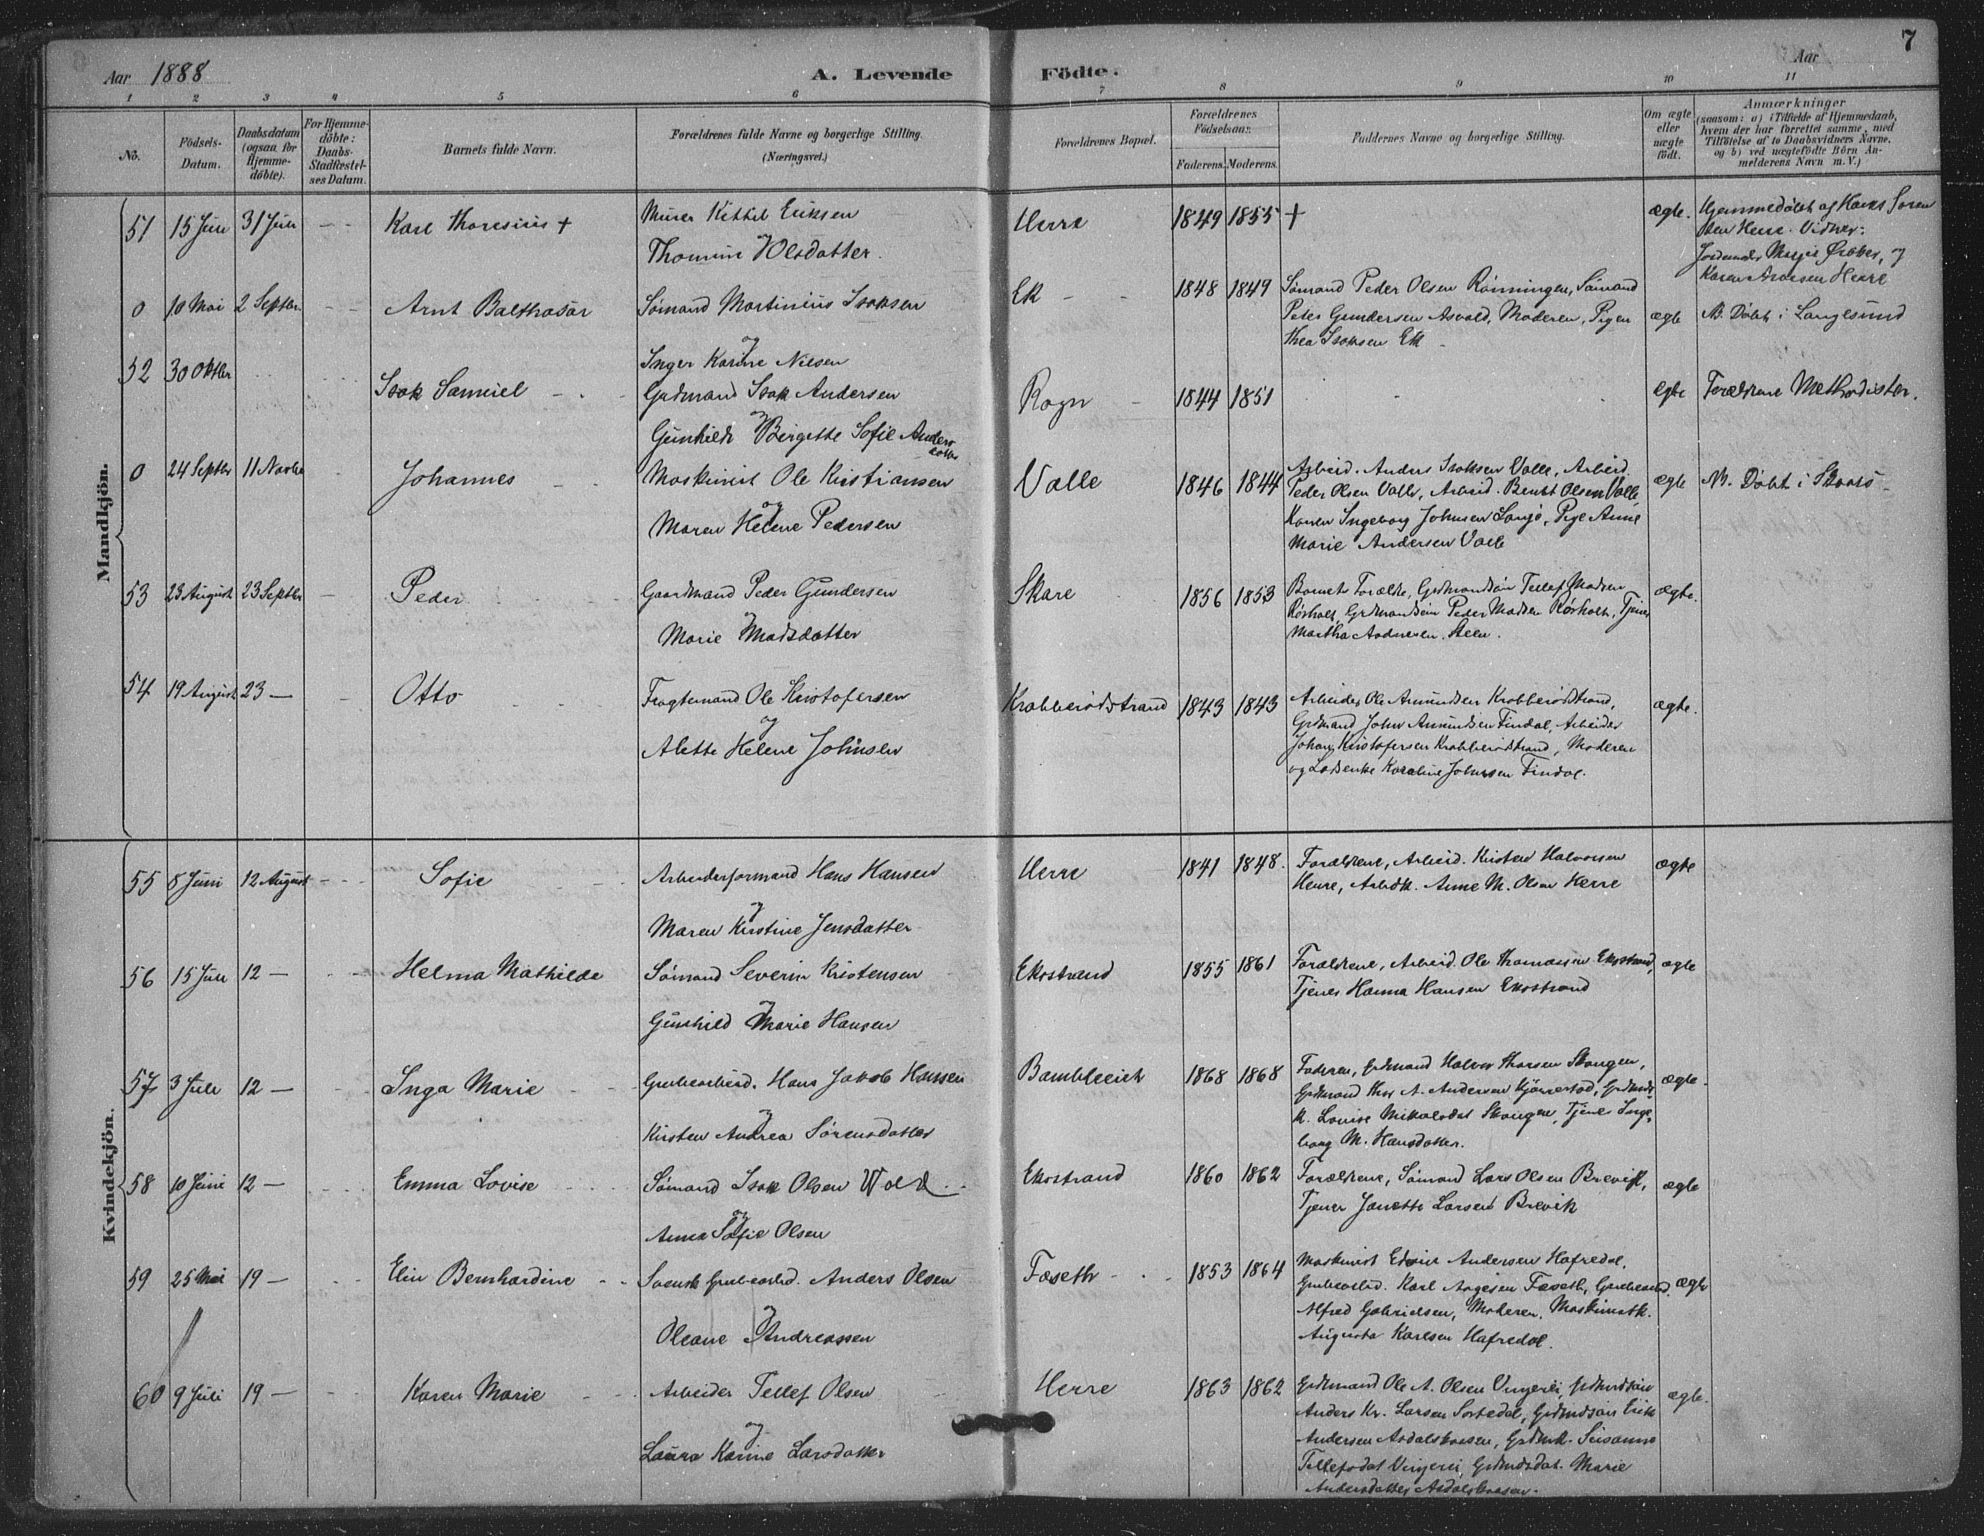 Aar 1888
A. Levende Födte.
Aar
7
1 2 3 4 5 6 7 8 9 10 11
No.
Födsels-Datum.
Daabsdatum (ogsaa for Hjemme-döbte).
For Hjemme-döbte: Daabs-Stadfæstel-ses Datum.
Barnets fulde Navn.
Forældrenes fulde Navne og borgerlige Stilling.
(Næringsvei.)
Forældrenes Bopæl.
Forældrenes Födselsaar.
Faderens. Moderens.
Faddernes Navne og borgerlige Stilling.
Om ægte eller uægte födt.
Anmærkninger
(saasom: a) i Tilfælde af Hjemmedaab,
hvem der har forrettet samme, med
Tilföielse af to Daabsvidners Navne,
og b) ved uægtefödte Börn An-
melderens Navn m. V.)
Mandkjön.
51 15 Juni 31 Juli Karl Thoresius +
Murer Kittil Eriksen
og
Thomine Olsdatter.
Herre 1849 1855 + ægte.
Hjemmedöbt af Hans Soren
sen Herre. Vidner:
og
Karen Andersen Herre
0 10 Mai 2 Septbr. Arnt Balthasar
Sömand Martinius Isaksen
og
Inger Karine Nilsen
Ek 1848 1849
Sømand Peder Olsen Rönningen, Sömand
Peter Gundersen Asvald, Moderen, Pigen
Thea Isaksen Ek
ægte N. Döbt i Langesund
52 30 Oktbr Isak Samuel
Grdmand Isak Andersen
og
Gunhild Birgette Sofie Anders
datter
Rogn 1844 1851 ægte Forældrene Methodister.
0 24 Septbr 11 Novbr Johannes
Maskinist Ole Kristiansen
og
Maren Helene Pedersen
Valle 1846 1844
Arbeid. Anders Isaksen Valle, Arbeid.
Peder Olsen Valle, Arbeid. Bendt Olsen Valle
Karen Ingeborg Johnsen Langö, Pige Anne
Marie Andersen Valle
ægte N. Döbt i Skaatö
53 23 August 23 Septbr Peder
Gaardmand Peder Gundersen
og
Marie Madsdatter
Skare 1856 1853
Barnets Forældre, Grdmandsön Tellef Madsen
Rörholt, Grdmandsön Peder Madsen Rörholt, Tjener
Martha Andresen
ægte.
54 19 August 23 — Otto
Fragtemand Ole Kristofersen
og
Alette Helene Johnsen
Krabberödstrand 1843 1843
Arbeider Ole Amundsen Krabberödstrand,
Grdmand John Amundsen Findal, Arbeider
Johan Kristofersen Krabberödstrand, Moderen
og Karoline Johnsen Findal.
ægte.
Kvindekjön.
55 8 Juni 12 August Sofie
Arbeiderformand Hans Hansen
og
Maren Kirstine Jensdatter
Herre 1841 1848.
Forældrene, Arbeid. Kristen Halvorsen
Herre, Arbdk. Anne M. Olsen Herre
ægte
56 15 Juli 12 — Helma Mathilde
Sømand Severin Kristensen
og
Gunhild Marie Hansen
Ekstrand 1855 1861
Forældrene, Arbeid. Ole Thomassen Ekstrand,
Tjener Hanna Hansen Ekstrand
ægte
57 3 Juli 12 — Inga Marie
Grubearbeid. Hans Jakob Hansen
og
Kirsten Andrea Sørensdatter
1868 1868
Faderen, Grdmand Halvor Thorsen Skougen,
Grdmand A. Andersen
K. Lovise Mikalsdat Skougen, Tjener Inge-
borg M. Hansdatter.
ægte
58 10 Juni 12 — Emma Lovise
Sømand Isak Olsen Wold
og
Anna Sofie Olsen
Ekstrand 1860 1862
Forældrene, Sömand Lars Olsen Brevik,
Tjener Janette Larsen Brevik
ægte
59 25 Mai 19 — Elin Bernhardine
Svensk Grubearbd. Anders Olsen
og
Oleane Andreassen
Fæseth 1853 1864
Maskinist Andersen Hafredal,
Grubearbd. Karl Aagesen Fæseth, Grubearbd.
Alfred Gabrielsen, Moderen, Maskinistk.
Augusta Karlsen Hafredal.
ægte
60 9 Juli 19 — Karen Marie
Arbeider Tellef Olsen
og
Laura Karine Larsdatter
Herre 1863 1862
Grdmand Ole A. Olsen
Anders Kr. Larsen Sortedal, Grdmdsön Erik
Andersen Grdmk. Susanne
Tellefsdat Grdmdsdat. Marie
Andersdatter
ægte.